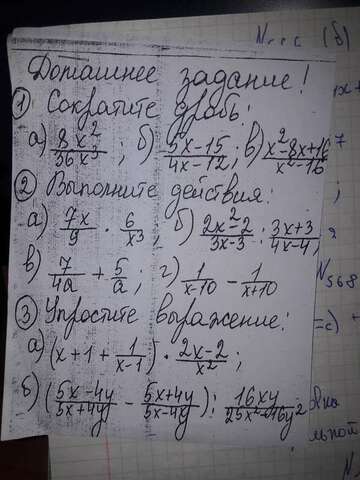 № (б)
Домашнее задание!
① Сократите дробь:
а) 8x²/36x³; б) 5x-15/4x-12; в) x²-8x+16/x²-16
② Выполните действия:
а) 7x/9 · 6/x³, б) 2x²-2/3x-3 : 3x+3/4x-4,
в) 7/4a + 5/a; г) 1/x-10 - 1/x+10
№568
③ Упростите выражение:
=c)
а) (x+1+1/x-1) · 2x-2/x²;
б) (5x-4y/5x+4y - 5x+4y/5x-4y) : 16xy/25x²-16y²
льной